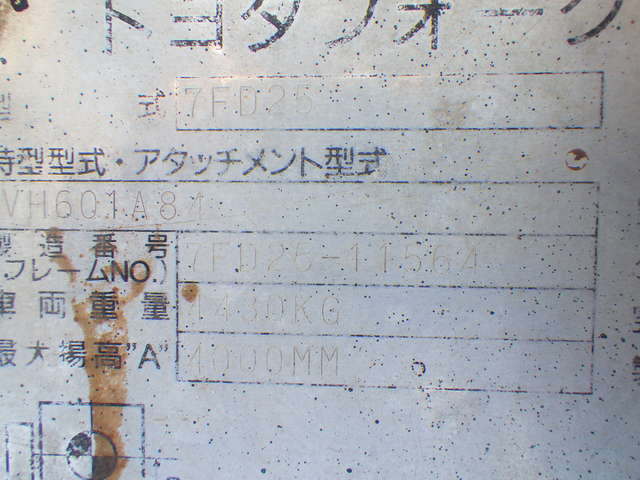 トヨタフォーク
型 式 7FD25
特型型式・アタッチメント型式
VH601A81
製造番号
(フレームNO.) 7FD25-11564
車両重量 4430KG
最大揚高"A" 4000MM